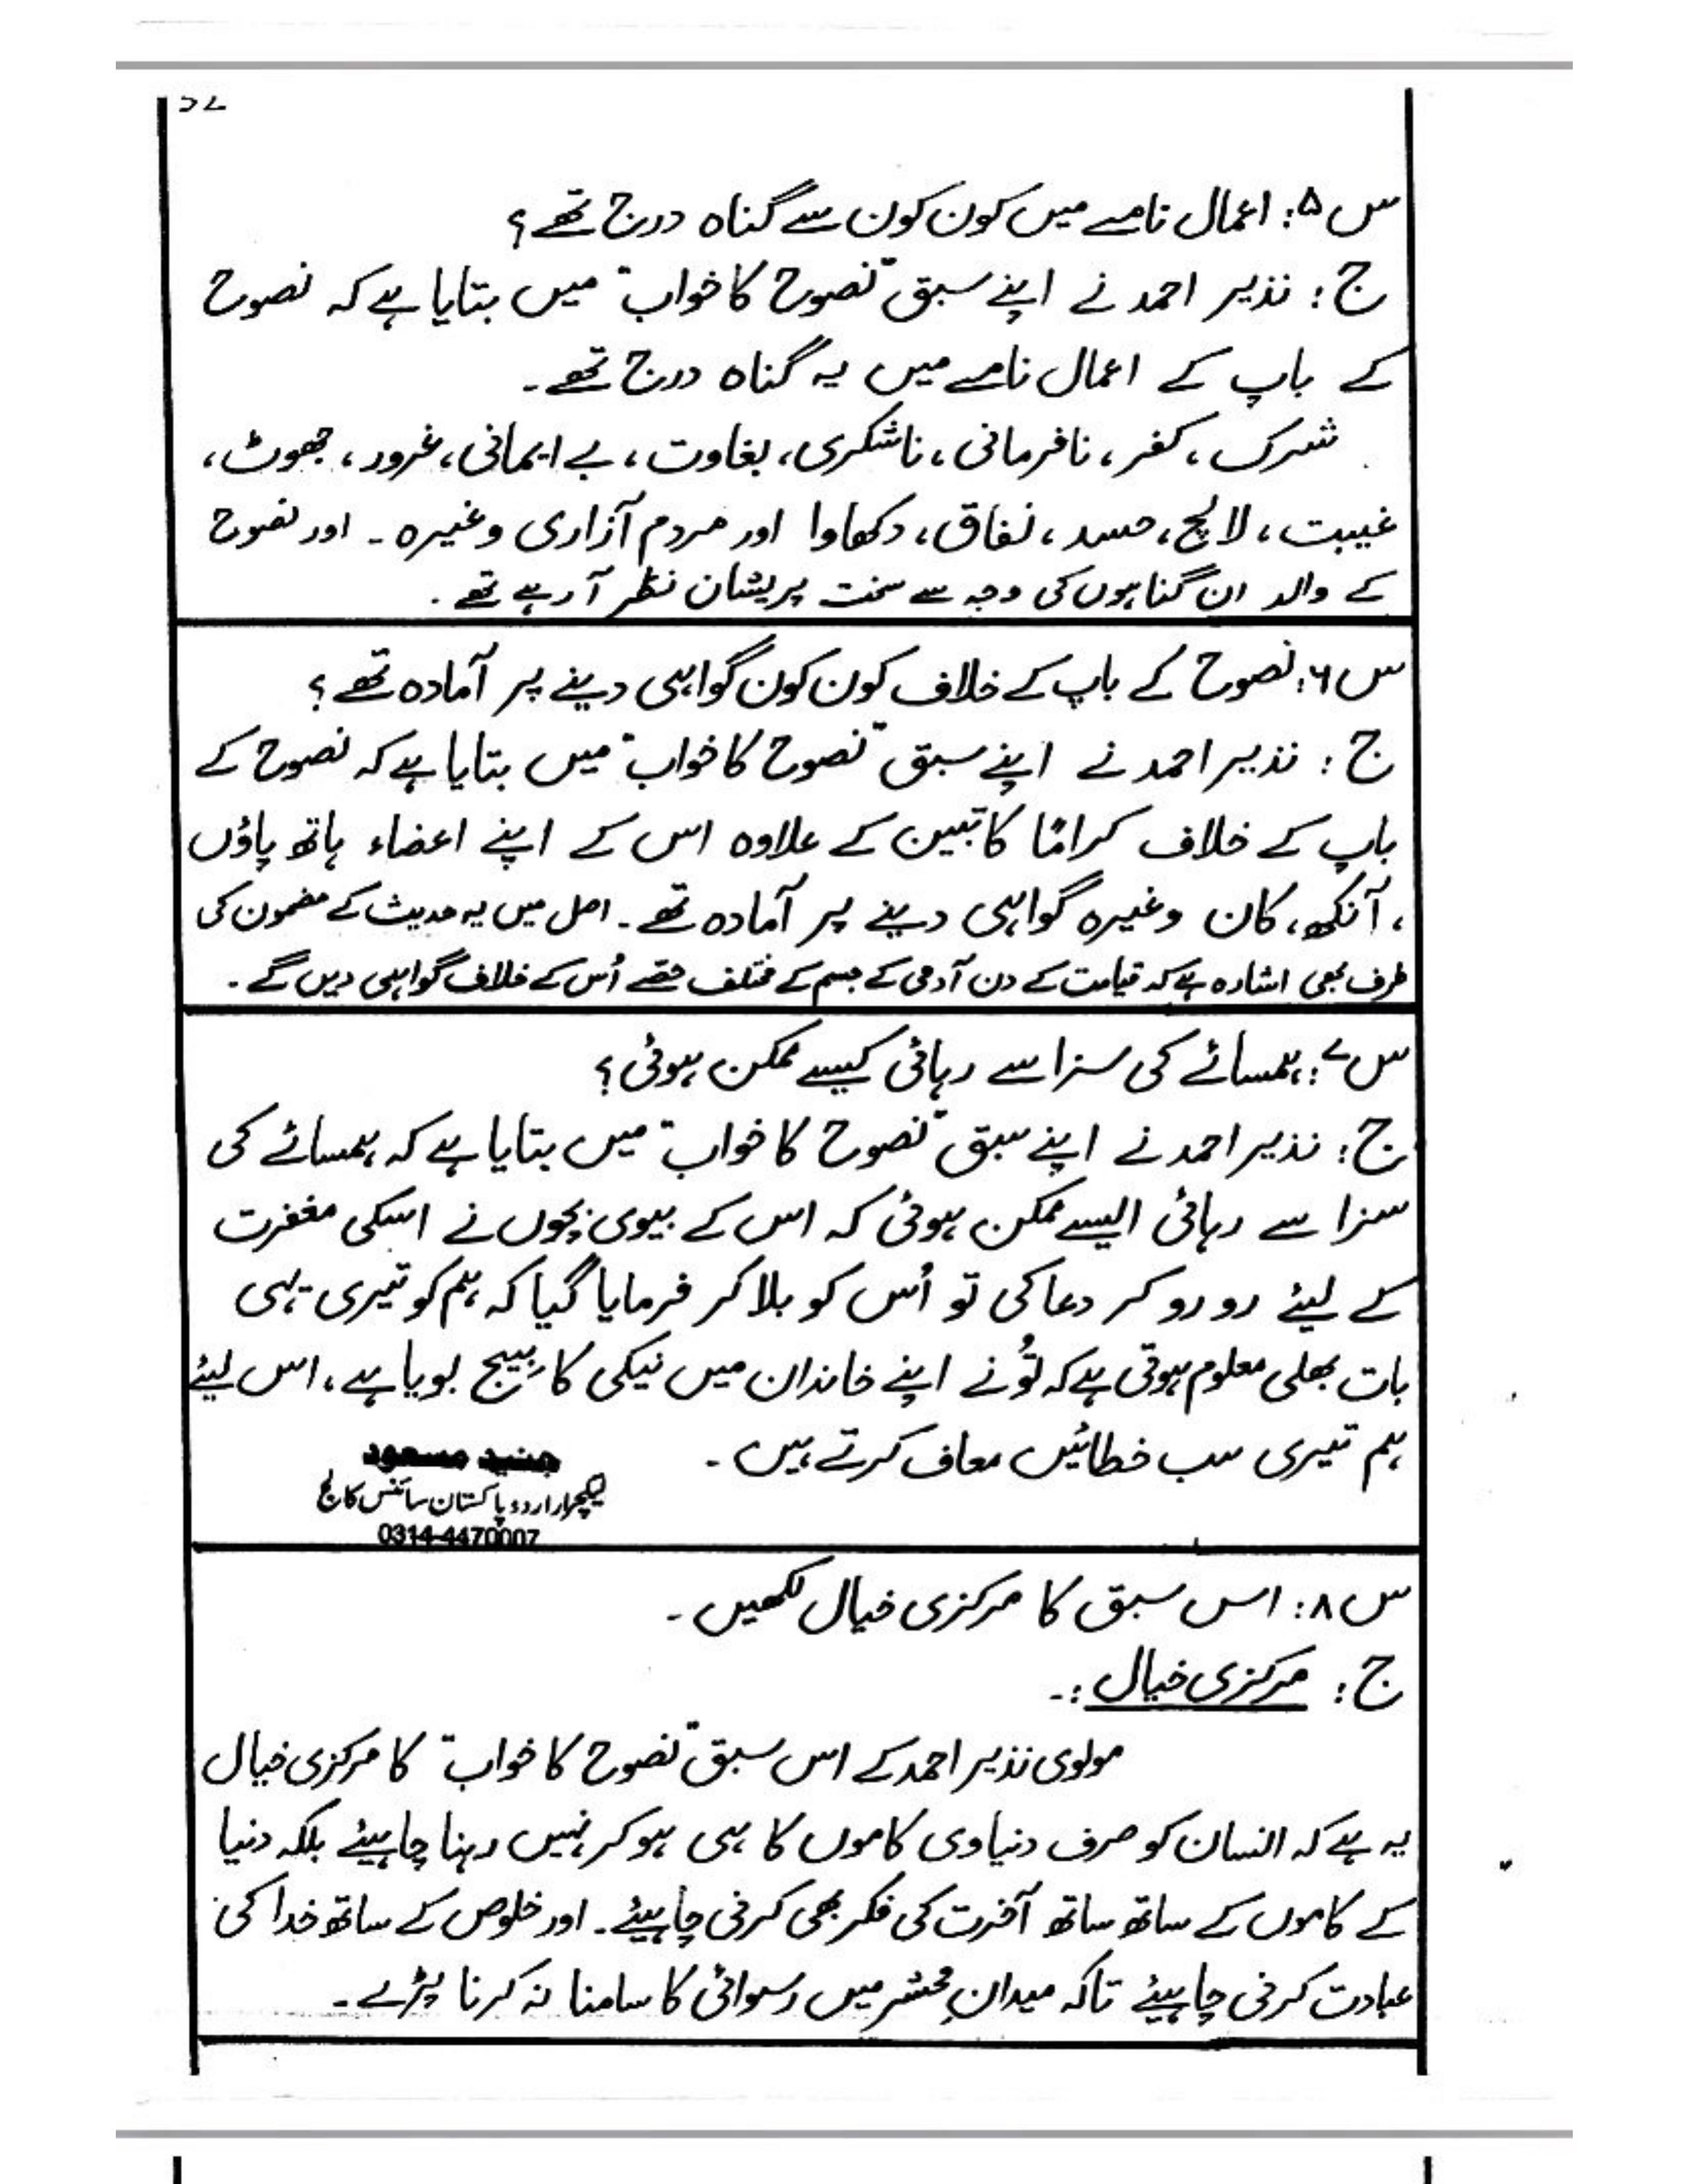 س۵: اعمال نامے میں کون کون سے گناہ درج تھے؟
ج: نذیر احمد نے اپنے سبق "نصوح کا خواب" میں بتایا ہے کہ نصوح
کے باپ کے اعمال نامے میں یہ گناہ درج تھے۔
شرک، کفر، نافرمانی، ناشکری، بغاوت، بے ایمانی، غرور، جھوٹ،
غیبت، لالچ، حسد، نفاق، دکھاوا اور مردم آزاری وغیرہ۔ اور نصوح
کے والد ان گناہوں کی وجہ سے سخت پریشان نظر آ رہے تھے۔
س۶: نصوح کے باپ کے خلاف کون کون گواہی دینے پر آمادہ تھے؟
ج: نذیر احمد نے اپنے سبق "نصوح کا خواب" میں بتایا ہے کہ نصوح کے
باپ کے خلاف کراماً کاتبین کے علاوہ اس کے اپنے اعضاء ہاتھ پاؤں
، آنکھ، کان وغیرہ گواہی دینے پر آمادہ تھے۔ اصل میں یہ حدیث کے مضمون کی
طرف بھی اشارہ ہے کہ قیامت کے دن آدمی کے جسم کے مختلف حصّے اُس کے خلاف گواہی دیں گے۔
س۷: ہمسائے کی سزا سے رہائی کیسے ممکن ہوئی؟
ج: نذیر احمد نے اپنے سبق "نصوح کا خواب" میں بتایا ہے کہ ہمسائے کی
سزا سے رہائی ایسے ممکن ہوئی کہ اس کے بیوی بچوں نے اسکی مغفرت
کے لیئے رو رو کر دعا کی تو اُس کو بلا کر فرمایا گیا کہ ہم کو تیری یہی
بات بھلی معلوم ہوتی ہے کہ تُو نے اپنے خاندان میں نیکی کا بیج بویا ہے، اس لیئے
ہم تیری سب خطائیں معاف کرتے ہیں۔
جنید مسعود
لیکچرار اردو پاکستان سائنس کالج
0314-4470007
س۸: اس سبق کا مرکزی خیال لکھیں۔
ج: مرکزی خیال:۔
مولوی نذیر احمد کے اس سبق "نصوح کا خواب" کا مرکزی خیال
یہ ہے کہ انسان کو صرف دنیاوی کاموں کا ہی ہو کر نہیں رہنا چاہیئے بلکہ دنیا
کے کاموں کے ساتھ ساتھ آخرت کی فکر بھی کرنی چاہیئے۔ اور خلوص کے ساتھ خدا کی
عبادت کرنی چاہیئے تاکہ میدانِ محشر میں رسوائی کا سامنا نہ کرنا پڑے۔